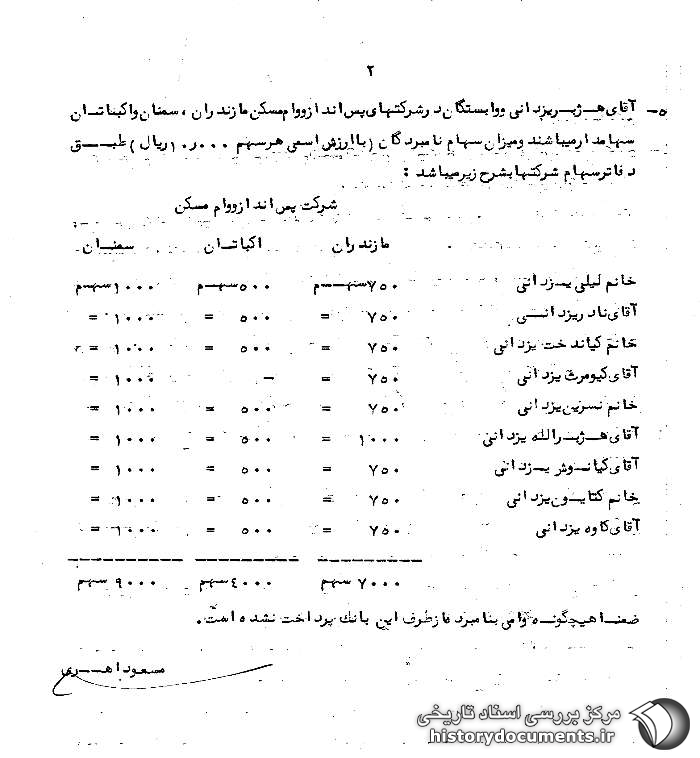 ۲
۵- آقای هژبر یزدانی و وابستگان در شرکتهای پس انداز و وام مسکن مازندران ، سمنان و اکباتان
سهامدار میباشند و میزان سهام نامبردگان ( با ارزش اسمی هر سهم ۱۰٫۰۰۰ ریال ) طبق
دفاتر سهام شرکتها بشرح زیر میباشد :
شرکت پس انداز و وام مسکن
مازندران اکباتان سمنان
خانم لیلی یزدانی ۷۵۰ سهم ۵۰۰ سهم ۱۰۰۰ سهم
آقای نادر یزدانی ۷۵۰ = ۵۰۰ = ۱۰۰۰ =
خانم کیاندخت یزدانی ۷۵۰ = ۵۰۰ = ۱۰۰۰ =
آقای کیومرث یزدانی ۷۵۰ = - ۱۰۰۰ =
خانم نسرین یزدانی ۷۵۰ = ۵۰۰ = ۱۰۰۰ =
آقای هژبرالله یزدانی ۱۰۰۰ = ۵۰۰ = ۱۰۰۰ =
آقای کیانوش یزدانی ۷۵۰ = ۵۰۰ = ۱۰۰۰ =
خانم کتایون یزدانی ۷۵۰ = ۵۰۰ = ۱۰۰۰ =
آقای کاوه یزدانی ۷۵۰ = ۵۰۰ = ۱۰۰۰ =
۷۰۰۰ سهم ۴۰۰۰ سهم ۹۰۰۰ سهم
ضمنا هیچگونه وامی بنامبرده از طرف این بانك پرداخت نشده است.
مسعود اهری
مرکز بررسی اسناد تاریخی
historydocuments.ir